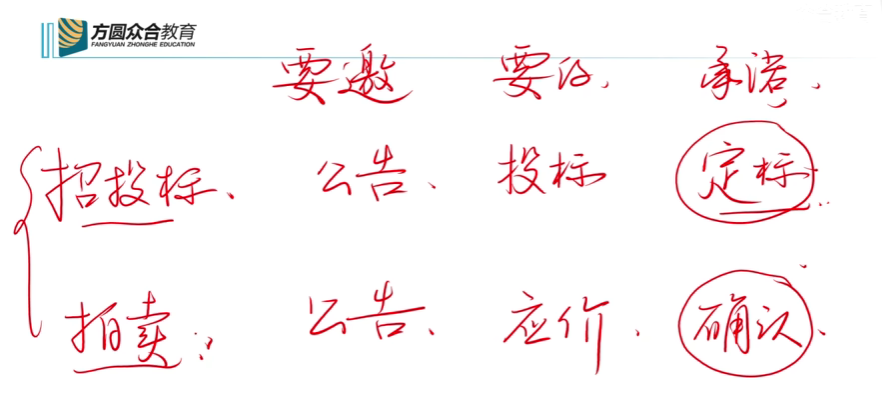 方圆众合教育
FANGYUAN ZHONGHE EDUCATION
要邀 要约、 承诺、
招投标、 公告、 投标 定标
拍卖: 公告、 应价、 确认、